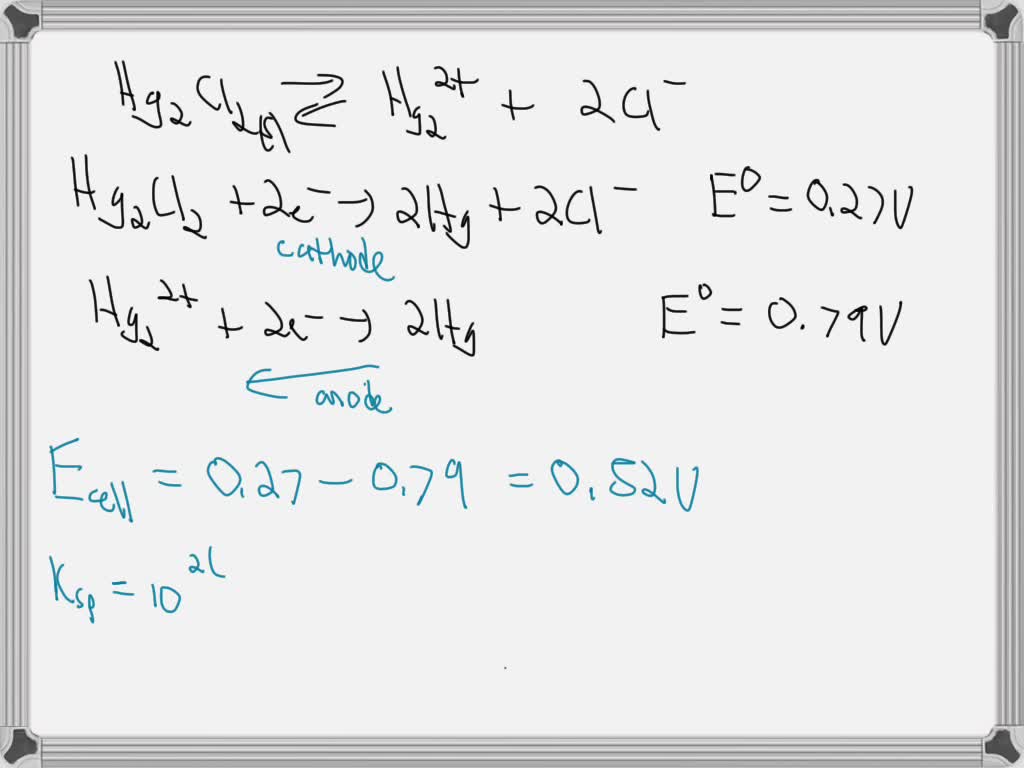 Hg₂Cl₂(s) ⇌ Hg₂²⁺ + 2Cl⁻
Hg₂Cl₂ + 2e⁻ → 2Hg + 2Cl⁻ E⁰ = 0.27V
cathode
Hg₂²⁺ + 2e⁻ → 2Hg E⁰ = 0.79V
← anode
Ecell = 0.27 − 0.79 = 0.52V
Ksp = 10²⁽